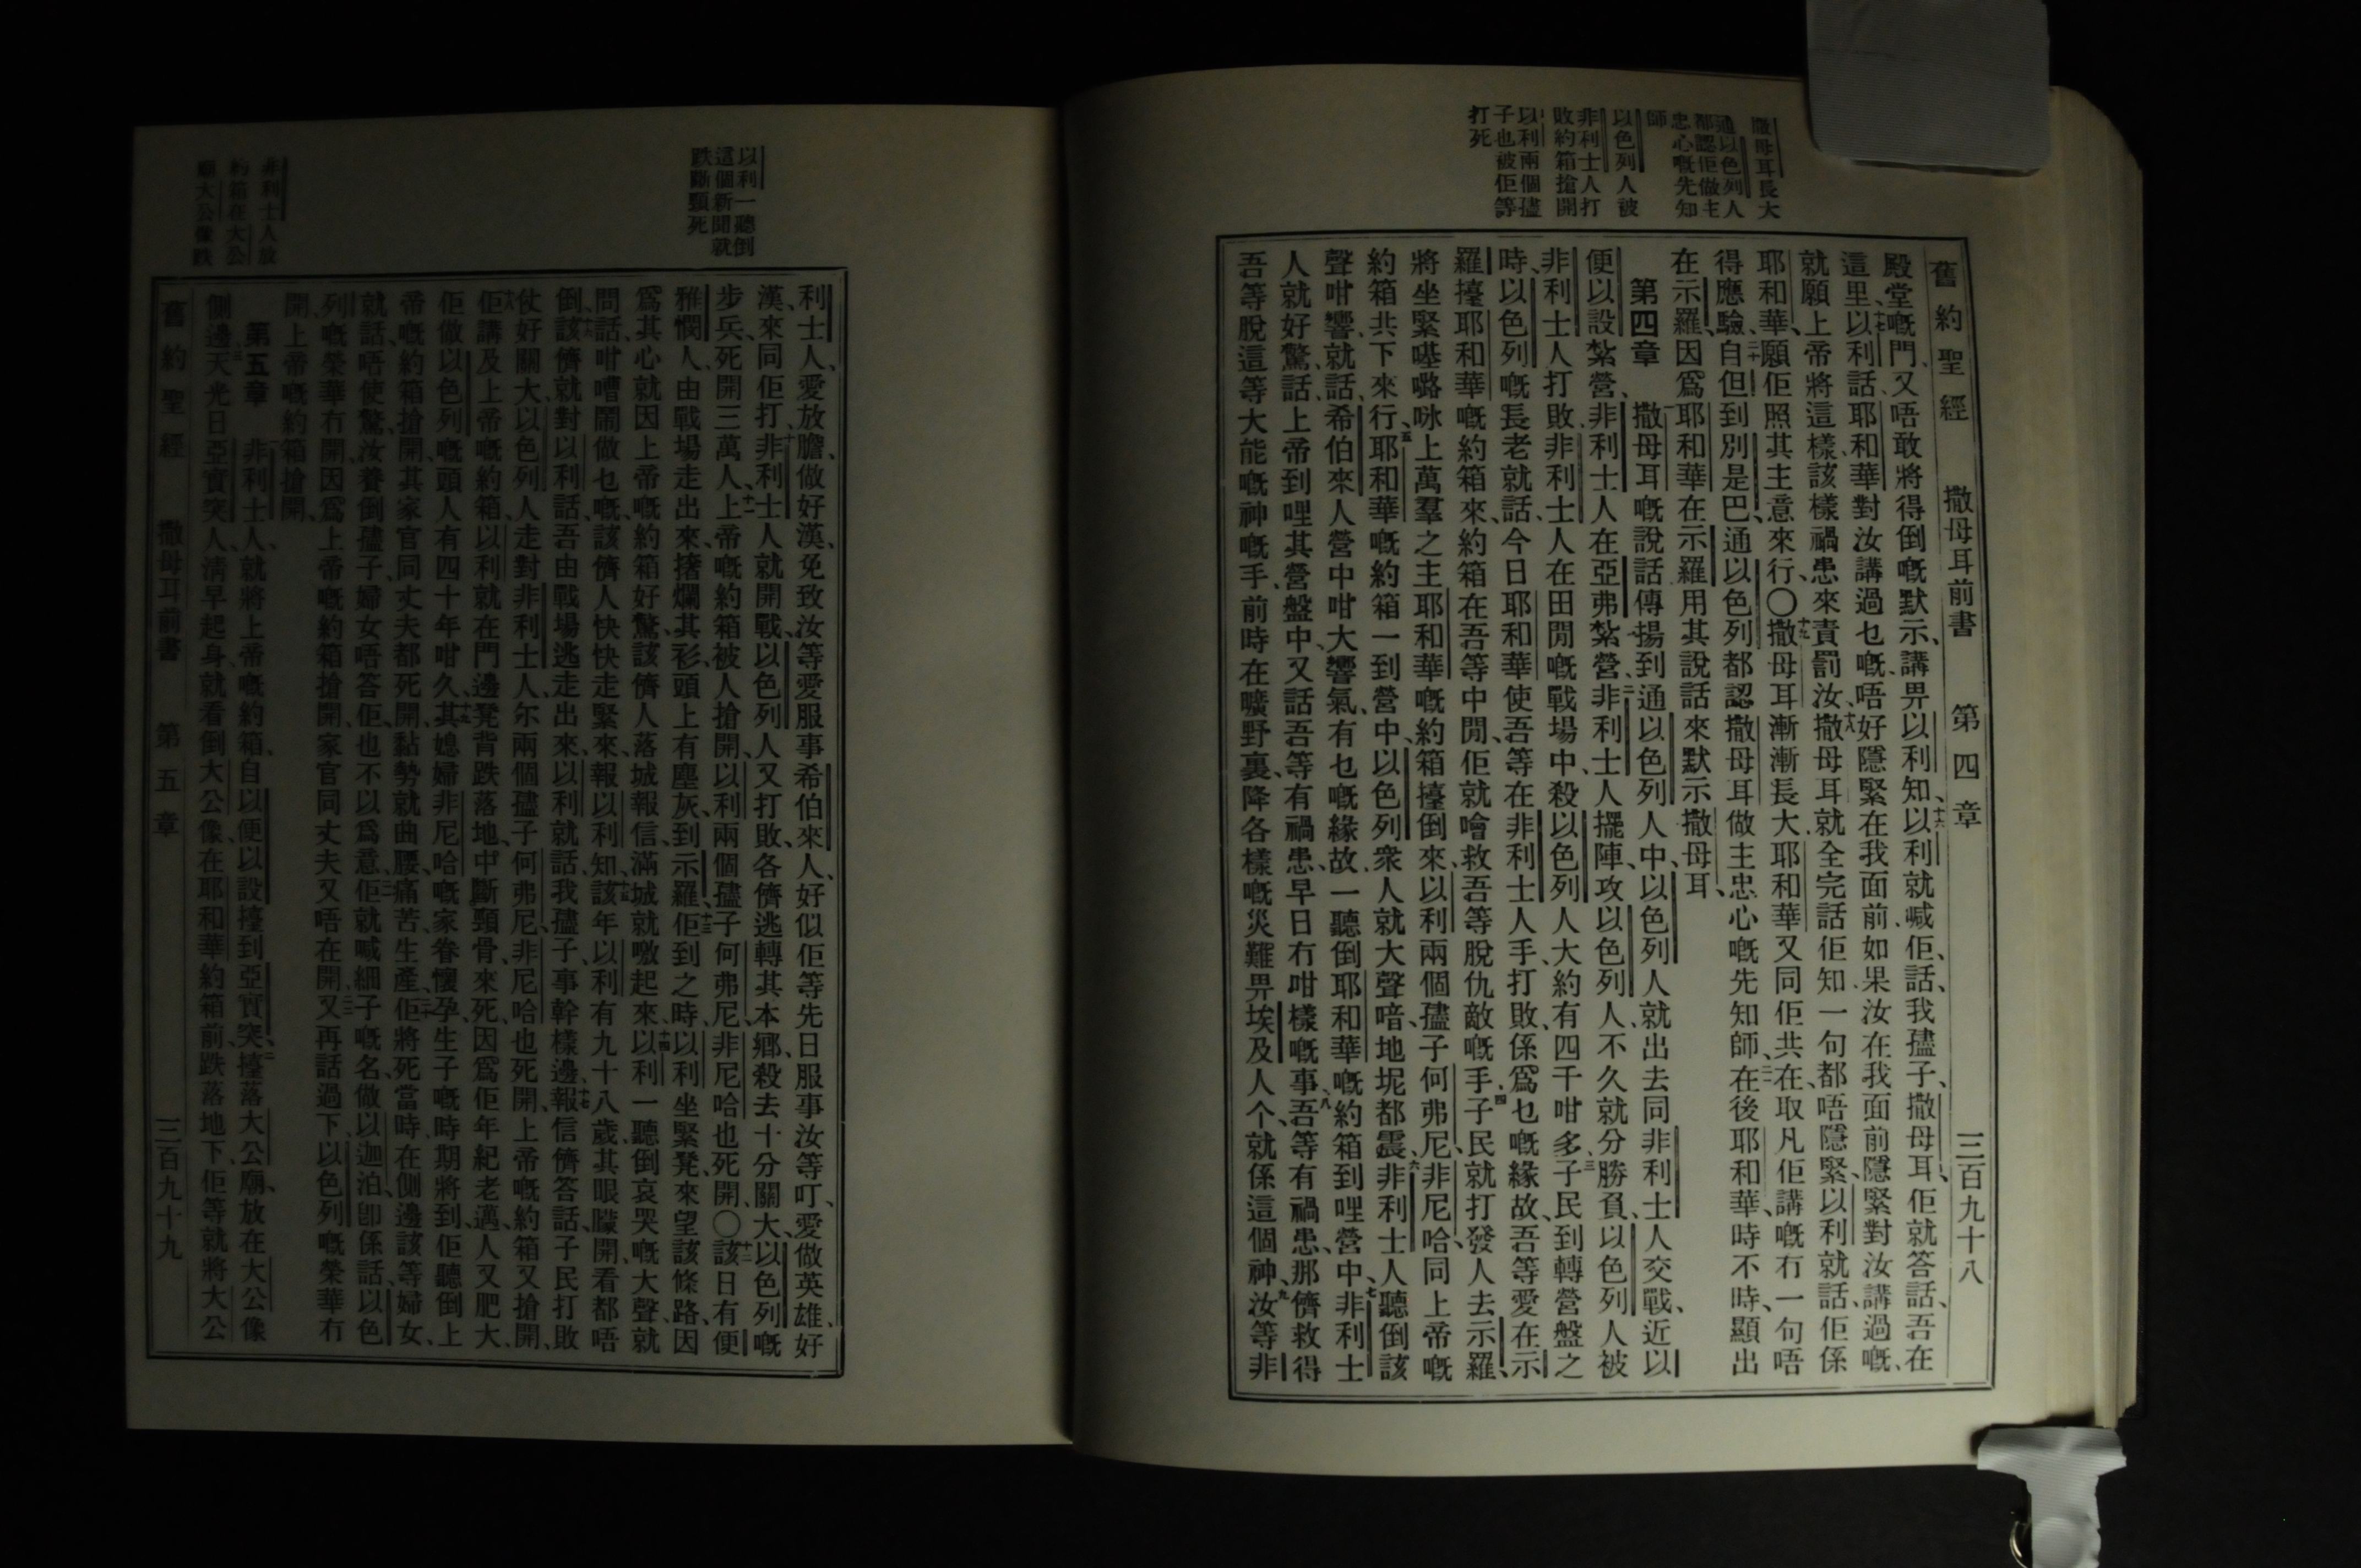 撒母耳長大
通以色列人
都認佢做主
忠心嘅先知
師
以色列人被
非利士人打
敗約箱搶開
以利兩個孻
子也被佢等
打死
舊約聖經 撒母耳前書 第四章 三百九十八
殿堂嘅門、又唔敢將得倒嘅默示、講畀以利知、十六以利就喊佢、話、我孻子、撒母耳、佢就答話、吾在
這里、十七以利話、耶和華對汝講過乜嘅、唔好隱緊在我面前、如果汝在我面前隱緊對汝講過嘅、
就願上帝將這樣該樣禍患來責罰汝、十八撒母耳就全完話佢知、一句都唔隱緊、以利就話、佢係
耶和華、願佢照其主意來行、〇十九撒母耳漸漸長大、耶和華又同佢共在、取凡佢講嘅冇一句唔
得應驗、二十自但到別是巴、通以色列都認撒母耳做主忠心嘅先知師、二一在後耶和華、時不時、顯出
在示羅、因爲耶和華在示羅用其說話來默示撒母耳、
第四章 一撒母耳嘅說話傳揚到通以色列人中、以色列人就出去同非利士人交戰、近以
便以設紮營、非利士人在亞弗紮營、二非利士人擺陣、攻以色列人、不久就分勝負、以色列人被
非利士人打敗、非利士人在田閒嘅戰場中、殺以色列人大約有四千咁多、三子民到轉營盤之
時、以色列嘅長老就話、今日耶和華使吾等在非利士人手、打敗、係爲乜嘅緣故、吾等愛在示
羅擡耶和華嘅約箱來、約箱在吾等中閒、佢就噲救吾等脫仇敵嘅手、四子民就打發人去示羅、
將坐緊𠸄𡀔咏上萬羣之主耶和華嘅約箱擡倒來、以利兩個孻子何弗尼、非尼哈、同上帝嘅
約箱共下來行、五耶和華嘅約箱一到營中、以色列衆人就大聲喑、地坭都震、六非利士人聽倒該
聲咁響、就話、希伯來人營中咁大響氣、有乜嘅緣故、一聽倒耶和華嘅約箱到哩營中、七非利士
人就好驚、話、上帝到哩其營盤中、又話、吾等有禍患、早日冇咁樣嘅事、八吾等有禍患、那儕救得
吾等脫這等大能嘅神嘅手、前時在曠野裏、降各樣嘅災難畀埃及人个、就係這個神、九汝等非
以利一聽倒
這個新聞就
跌斷頸死
非利士人放
約箱在大公
廟大公像跌
利士人、愛放膽、做好漢、免致汝等愛服事希伯來人、好似佢等先日服事汝等叮、愛做英雄、好
漢、來同佢打、十非利士人就開戰、以色列人又打敗、各儕逃轉其本鄉、殺去十分關大、以色列嘅
步兵、死開三萬人、十一上帝嘅約箱被人搶開、以利兩個孻子何弗尼、非尼哈也死開、〇十二該日有便
雅憫人、由戰場走出來、撦爛其衫、頭上有塵灰、到示羅、十三佢到之時、以利坐緊凳、來望該條路、因
爲其心就因上帝嘅約箱好驚、該儕人落城報信、滿城就噭起來、十四以利一聽倒哀哭嘅大聲、就
問話、咁嘈鬧做乜嘅、該儕人快快走緊來、報以利知、十五該年以利有九十八歲、其眼矇開、看都唔
倒、十六該儕就對以利話、吾由戰場逃走出來、以利就話、我孻子、事幹樣邊、十七報信儕答話、子民打敗
仗好關大、以色列人走對非利士人、尔兩個孻子何弗尼、非尼哈也死開、上帝嘅約箱又搶開、
十八佢講及上帝嘅約箱、以利就在門邊凳背跌落地中、斷頸骨、來死、因爲佢年紀老邁、人又肥大、
佢做以色列嘅頭人有四十年咁久、十九其媳婦非尼哈嘅家眷懷孕、生子嘅時期將到、佢聽倒上
帝嘅約箱搶開、其家官同丈夫都死開、黏勢就曲腰、痛苦生產、二十佢將死、當時、在側邊該等婦女、
就話、唔使驚、汝養倒孻子、婦女唔答佢、也不以爲意、二一佢就喊細子嘅名、做以迦泊、卽係話、以色
列嘅榮華冇開、因爲上帝嘅約箱搶開、家官同丈夫又唔在開、二二又再話過下、以色列嘅榮華冇
開、上帝嘅約箱搶開、
第五章 一非利士人、就將上帝嘅約箱、自以便以設擡到亞實突、二擡落大公廟、放在大公像
側邊、三天光日亞實突人、清早起身、就看倒大公像、在耶和華約箱前、跌落地下、佢等就將大公
舊約聖經 撒母耳前書 第五章 三百九十九